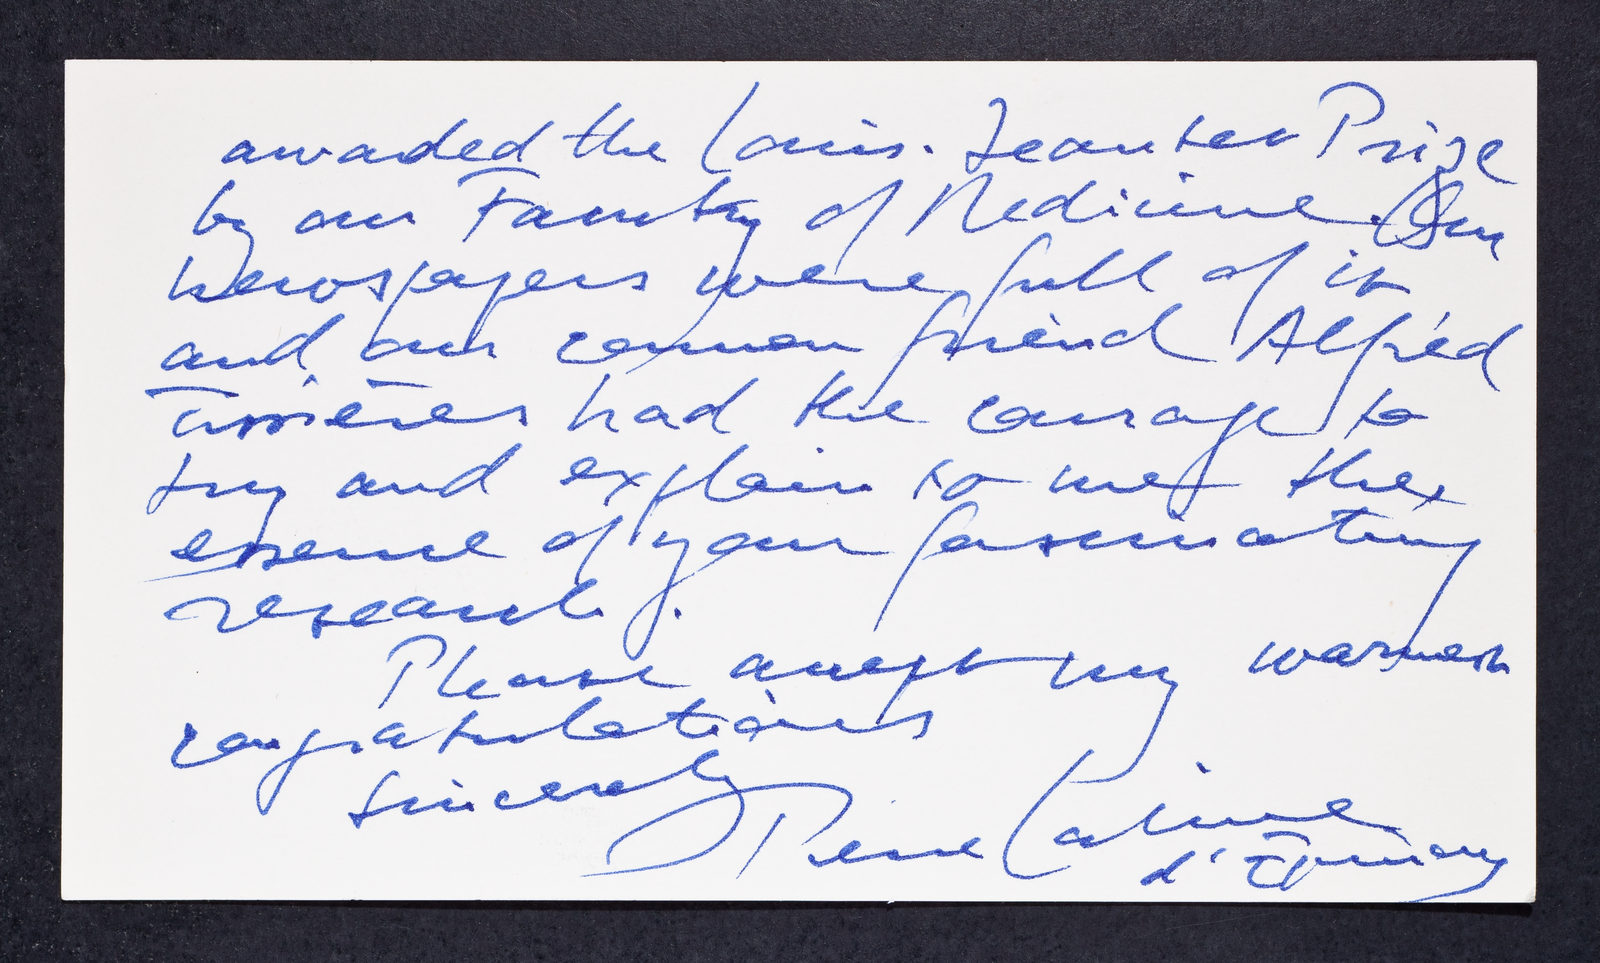 awarded the Louis. Jeantet Prize
by our Faculty of Medicine. Our
newspapers were full of it
and our common friend Alfred
Tissières had the courage to
try and explain to me the
essence of your fascinating
research.
Please accept my warmest
congratulations
Sincerely
Catherine